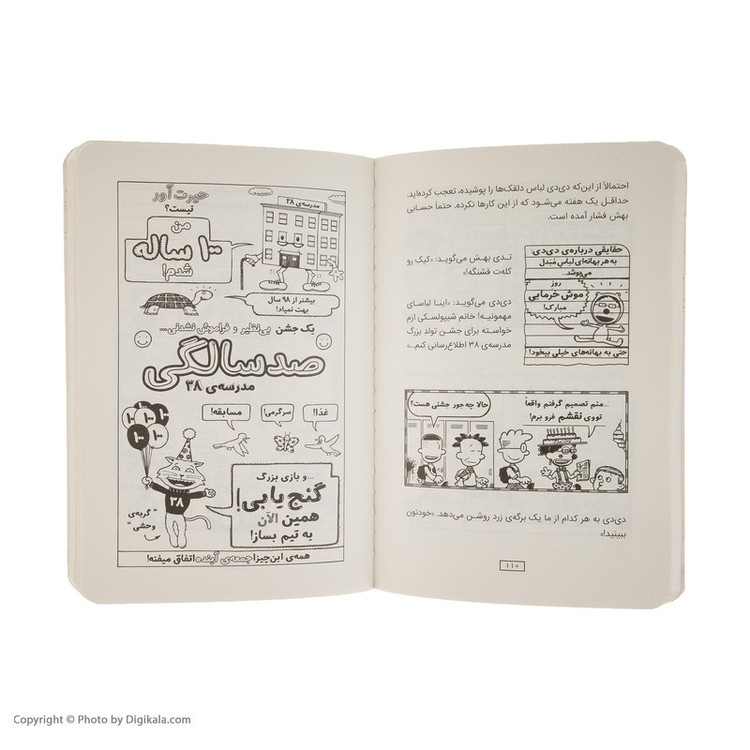 احتمالاً از این‌که دی‌دی لباس دلقک‌ها را پوشیده، تعجب کرده‌اید.
حداقل یک هفته می‌شود که از این کارها نکرده. حتماً حسابی
بهش فشار آمده است.
تدی بهش می‌گوید: «کیک رو
کله‌ت قشنگه!»
دی‌دی می‌گوید: «اینا لباسای
مهمونیه! خانم شیپولسکی ازم
خواسته برای جشن تولدِ بزرگِ
مدرسه‌ی ۳۸ اطلاع‌رسانی کنم...
حقایقی درباره‌ی دی‌دی:
به هر بهانه‌ای لباس مُبَدل
می‌پوشد.
روز
موش خرمایی
مبارک!
حتی به بهانه‌های خیلی بیخود!
...منم تصمیم گرفتم واقعاً
تووی نقشم فرو برم!
حالا چه‌جور جشنی هست؟
دی‌دی به هر کدام از ما یک برگه‌ی زرد روشن می‌دهد. «خودتون
ببینید!»
۱۱۰
حیرت‌آور
نیست؟
مدرسه‌ی ۳۸
من
۱۰۰ ساله
شدم!
بیشتر از ۹۸ سال
بهت نمیاد!
یک جشن بی‌نظیر و فراموش نشدنی...
صد سالگی
مدرسه‌ی ۳۸
غذا!
سرگرمی!
مسابقه!
۱۰۰
۱۰۰
۱۰۰
۳۸
...و بازی بزرگ
گنج‌یابی!
همین الآن
یه تیم بساز!
"گربه‌ی
وحشی"
همه‌ی این‌چیزا جمعه‌ی آینده اتفاق میفته!
Copyright © Photo by Digikala.com